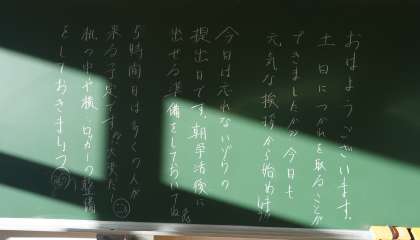 おはようございます。
土日につかれを取ることが
できましたか？今日も
元気な挨拶から始めましょう
今日は忘れないうちの
提出日です。朝学活後に
出せる準備をしておいてね
5時間目は多くの人が
来る予定です
机の中や横、ロッカーの整備
をしておきましょう